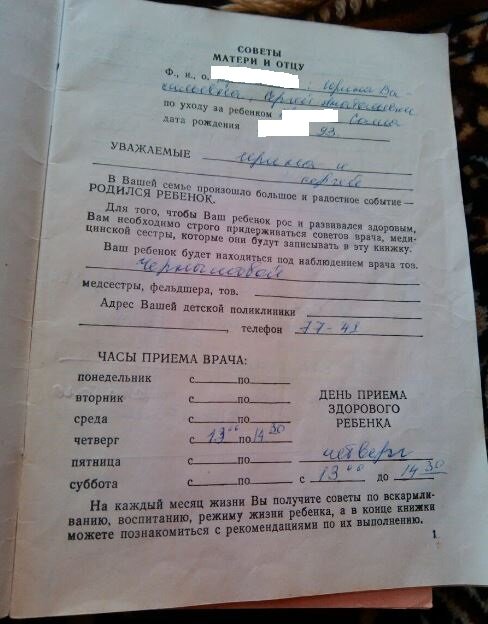 СОВЕТЫ
МАТЕРИ И ОТЦУ
Ф., и., о. Ирина Ва-
сильевна, Сергей Анатольевич
по уходу за ребенком Саша
дата рождения 93.
УВАЖАЕМЫЕ Ирина и
Сергей
В Вашей семье произошло большое и радостное событие —
РОДИЛСЯ РЕБЕНОК.
Для того, чтобы Ваш ребенок рос и развивался здоровым,
Вам необходимо строго придерживаться советов врача, меди-
цинской сестры, которые они будут записывать в эту книжку.
Ваш ребенок будет находиться под наблюдением врача тов.
медсестры, фельдшера, тов.
Адрес Вашей детской поликлиники
, телефон 77-48
ЧАСЫ ПРИЕМА ВРАЧА:
понедельник с по
вторник с по
среда с по
четверг с 13 00 по 14 30
пятница с по
суббота с по
ДЕНЬ ПРИЕМА
ЗДОРОВОГО
РЕБЕНКА
четверг
с 13 00 до 14 30
На каждый месяц жизни Вы получите советы по вскармли-
ванию, воспитанию, режиму жизни ребенка, а в конце книжки
можете познакомиться с рекомендациями по их выполнению.
1